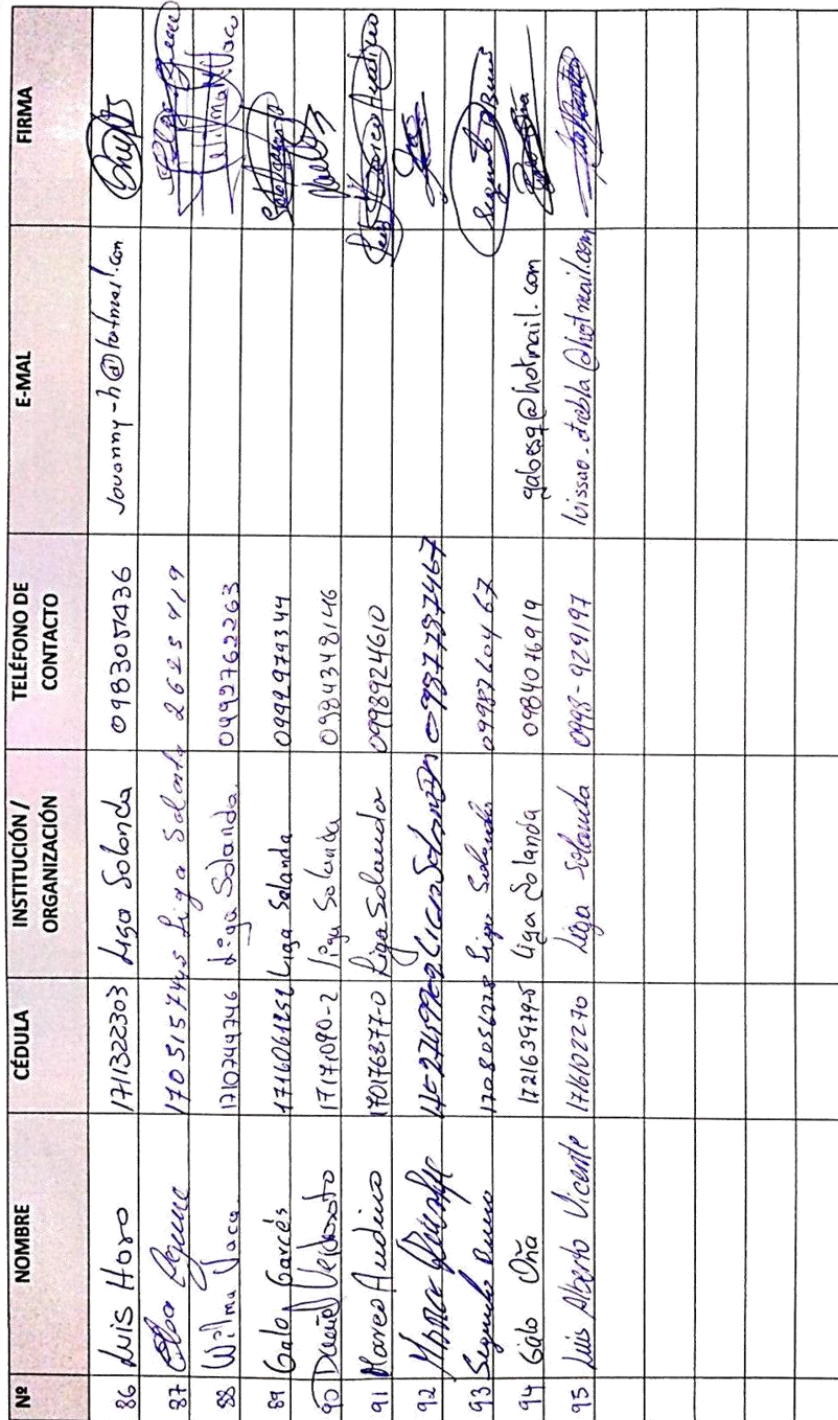 Nº NOMBRE CÉDULA INSTITUCIÓN / ORGANIZACIÓN TELÉFONO DE CONTACTO E-MAL FIRMA
86 Luis Haro 1711322303 Liga Solanda 0983057436 Jovanny-h@hotmail.com
87 Liga Solanda 2625419
88 Wilma Vaca 1710744746 Liga Solanda. 0492762263 Wilma Vaca
89 Galo Garcés 1716061252 Liga Solanda 0992974344
90 Daniel 17171090-2 Liga Solanda 0984348146
91 Marco Andino 170176377-0 Liga Solanda 0998924610 Marco Andino
92 0987787467
93 Segundo 1708056278 Liga Solanda 0998760467 Segundo
94 Galo Oña 172163979-5 Liga Solanda 0984076919 galoesq@hotmail.com
95 Luis Alberto Vicente 1716102270 Liga Solanda 0998-929197 luissao-drebla@hotmail.com